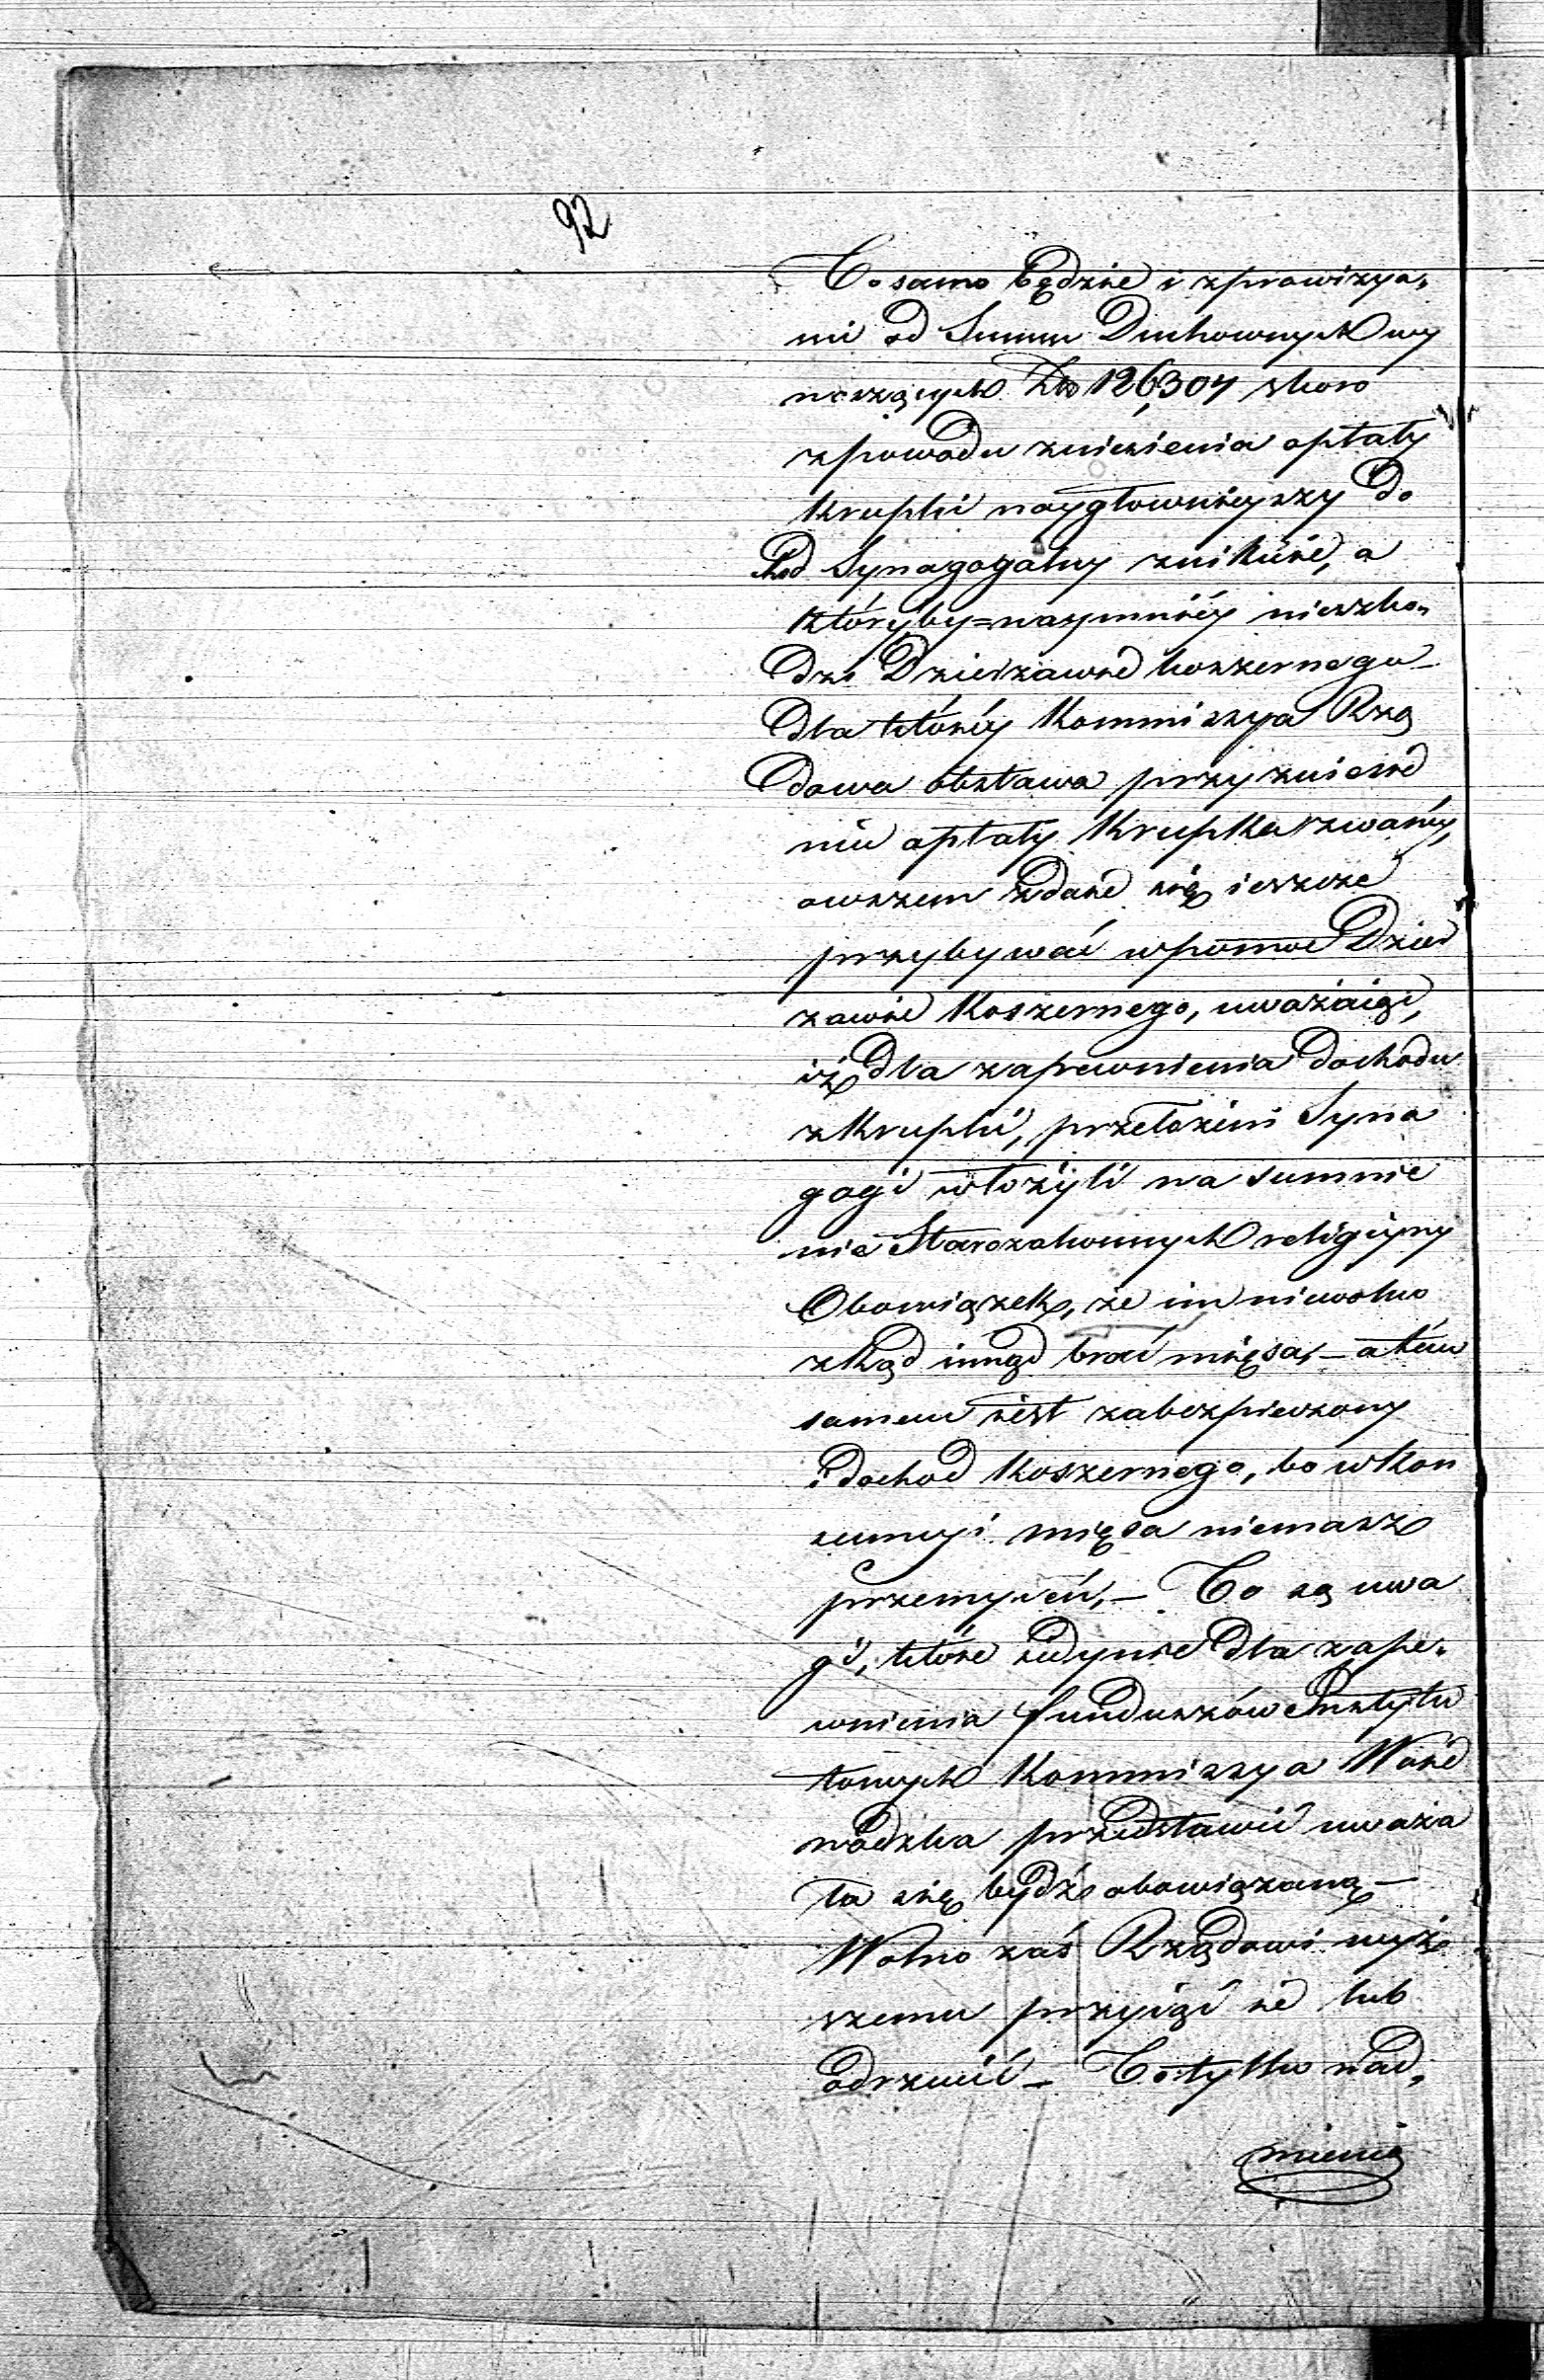 92
To samo będzie i z prowizya„
mi od Summ Duchownych wy
noszących Złp 126,304 skoro
z powodu zniesienia opłaty
Krupki naygłownieyszy Do
chod Synagogalny zniknie, a
któryby=naymniéy nieszko„
dzi Dzierzawie koszernego _
dla któréy Kommissya Rzą
dowa obstawa przy zniesie
niu opłaty Krupka zwanéy,
owszem zdaie się ieszcze
przybywać w pomoc Dzier
zawie Koszernego, uważaiąc,
iż dla zapewnienia Dochodu
z Krupki, przełożeni Syna
gogi włożyli na sumnie
nie Starozakonnych religiyny
Obowiązek, że im niewolno
zkąd inąd brać mięsa, – a tém
samem iest zabezpieczony
i dochod Koszernego, bo w Kon
sumcyi mięsa niemasz
przemyceń, – To są uwa
gi, które iedynie dla zape„
wnienia funduszów Instytu
towych Kommissya Woie
wódzka przedstawić uważa
ła się bydź obowiązaną –
Wolno zaś Rządowi wyż
szemu przyiąć ie lub
odrzucić – To tylko nad„
mienia